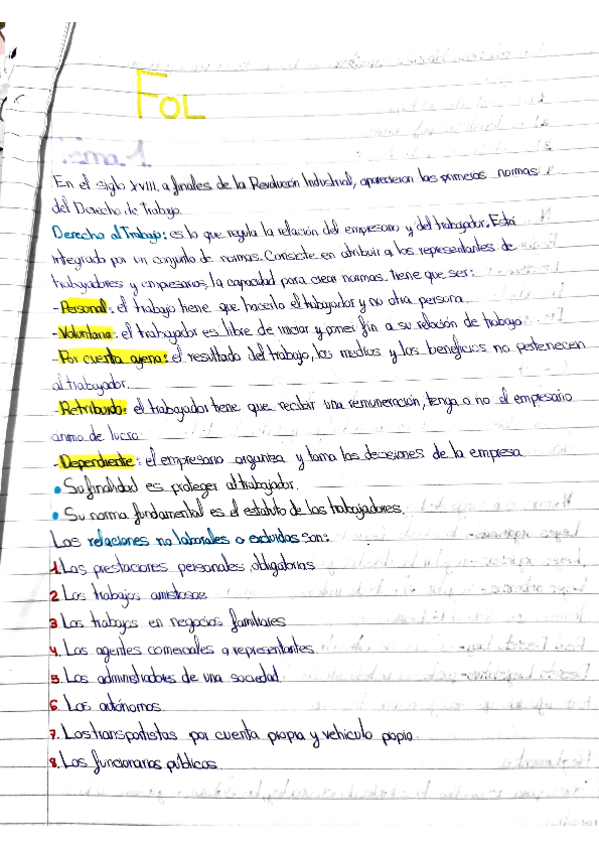 FOL
Tema 1.
En el siglo XVIII, a finales de la Revolución Industrial, aparecieron las primeras normas
del Derecho de Trabajo.
Derecho al Trabajo: es lo que regula la relación del empresario y del trabajador. Está
integrado por un conjunto de normas. Consiste en atribuir a los representantes de
trabajadores y empresarios, la capacidad para crear normas. Tiene que ser:
- Personal: el trabajo tiene que hacerlo el trabajador y no otra persona.
- Voluntaria: el trabajador es libre de iniciar y poner fin a su relación de trabajo.
- Por cuenta ajena: el resultado del trabajo, los medios y los beneficios no pertenecen
al trabajador.
- Retribuido: el trabajador tiene que recibir una remuneración, tenga o no el empresario
animo de lucro.
- Dependiente: el empresario organiza y toma las decisiones de la empresa.
• Su finalidad es proteger al trabajador.
• Su norma fundamental es el estatuto de los trabajadores.
Las relaciones no laborales o excluidas son:
1. Las prestaciones personales obligatorias
2. Los trabajos amistosos
3. Los trabajos en negocios familiares
4. Los agentes comerciales o representantes.
5. Los administradores de una sociedad.
6. Los autónomos.
7. Los transportistas por cuenta propia y vehículo propio.
8. Los funcionarios públicos.